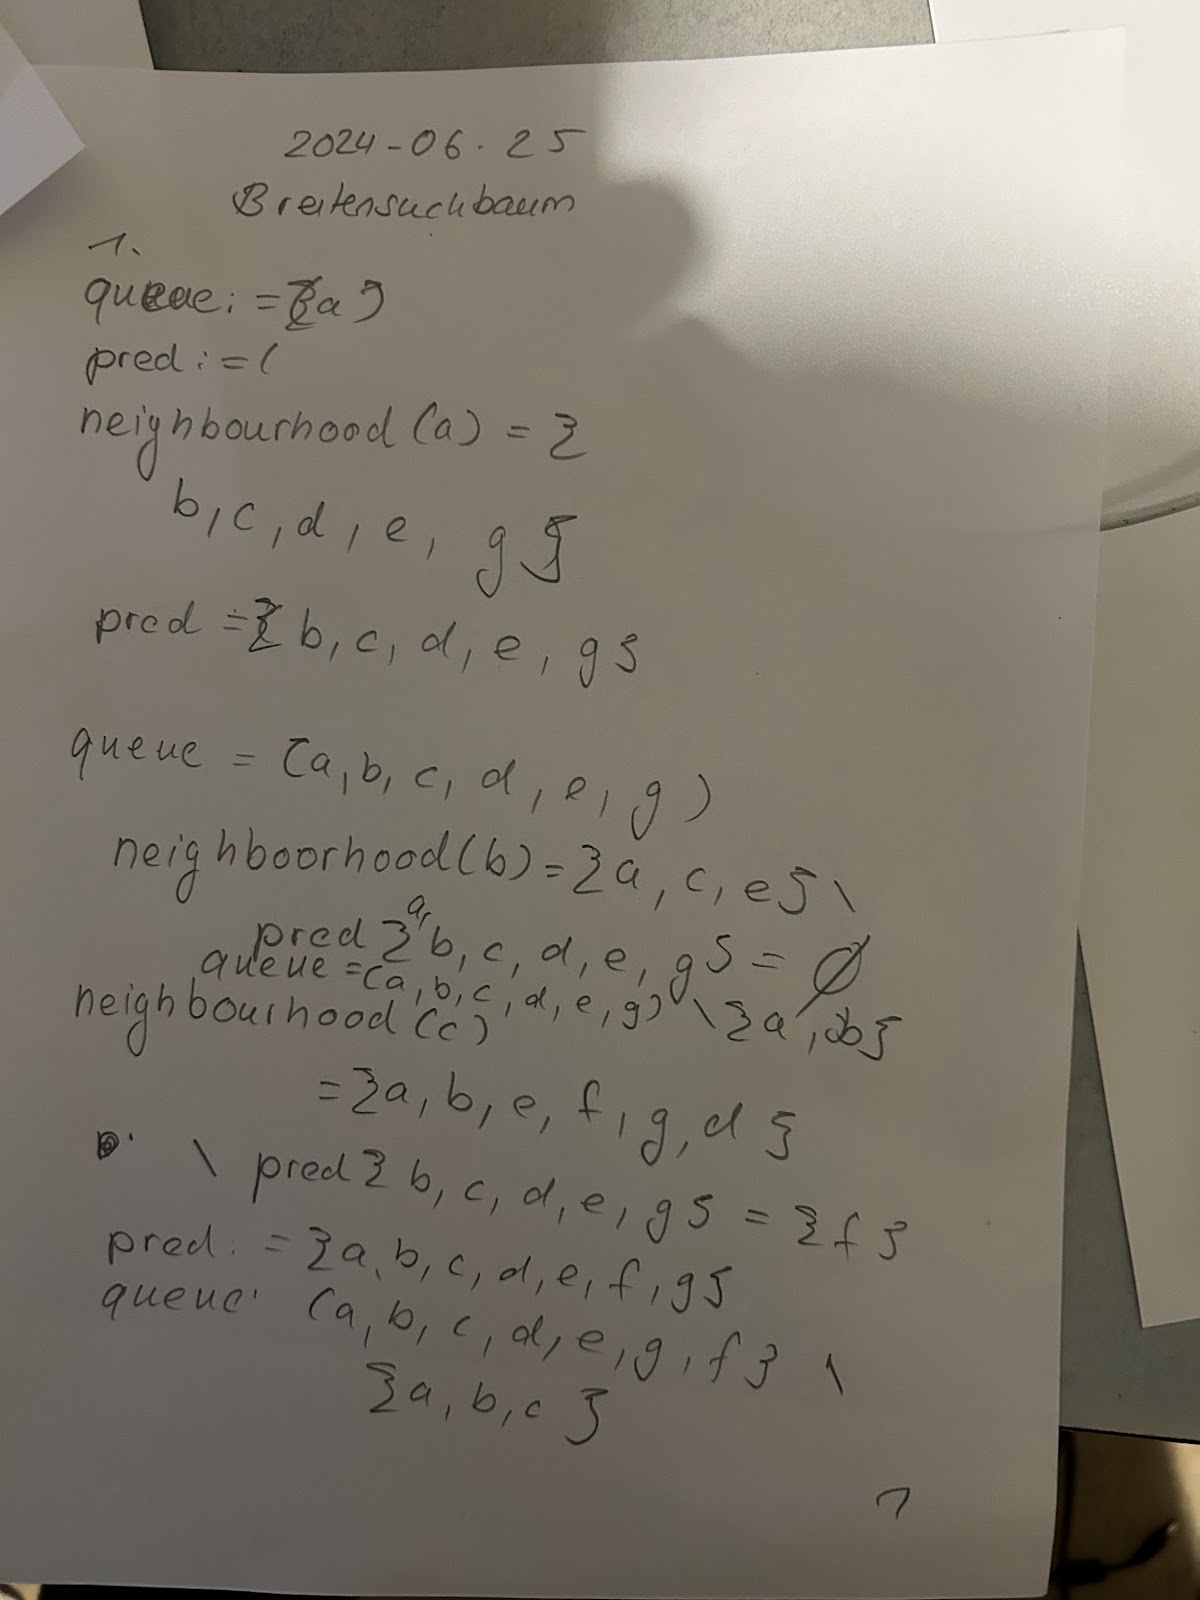 2024-06.25
Breitensuchbaum
1.
queue: = {a)
pred := (
neighbourhood (a) = {
b, c, d, e, g}
pred = { b, c, d, e, g}
queue = (a, b, c, d, e, g )
neighboorhood(b) = {a, c, e} \
pred {a, b, c, d, e, g} = ∅
queue = (a, b, c, d, e, g) \ {a, b}
neighbourhood (c)
= {a, b, e, f, g, d }
\ pred { b, c, d, e, g} = { f }
pred. = {a, b, c, d, e, f, g}
queue. (a, b, c, d, e, g, f } \
{a, b, c }
1